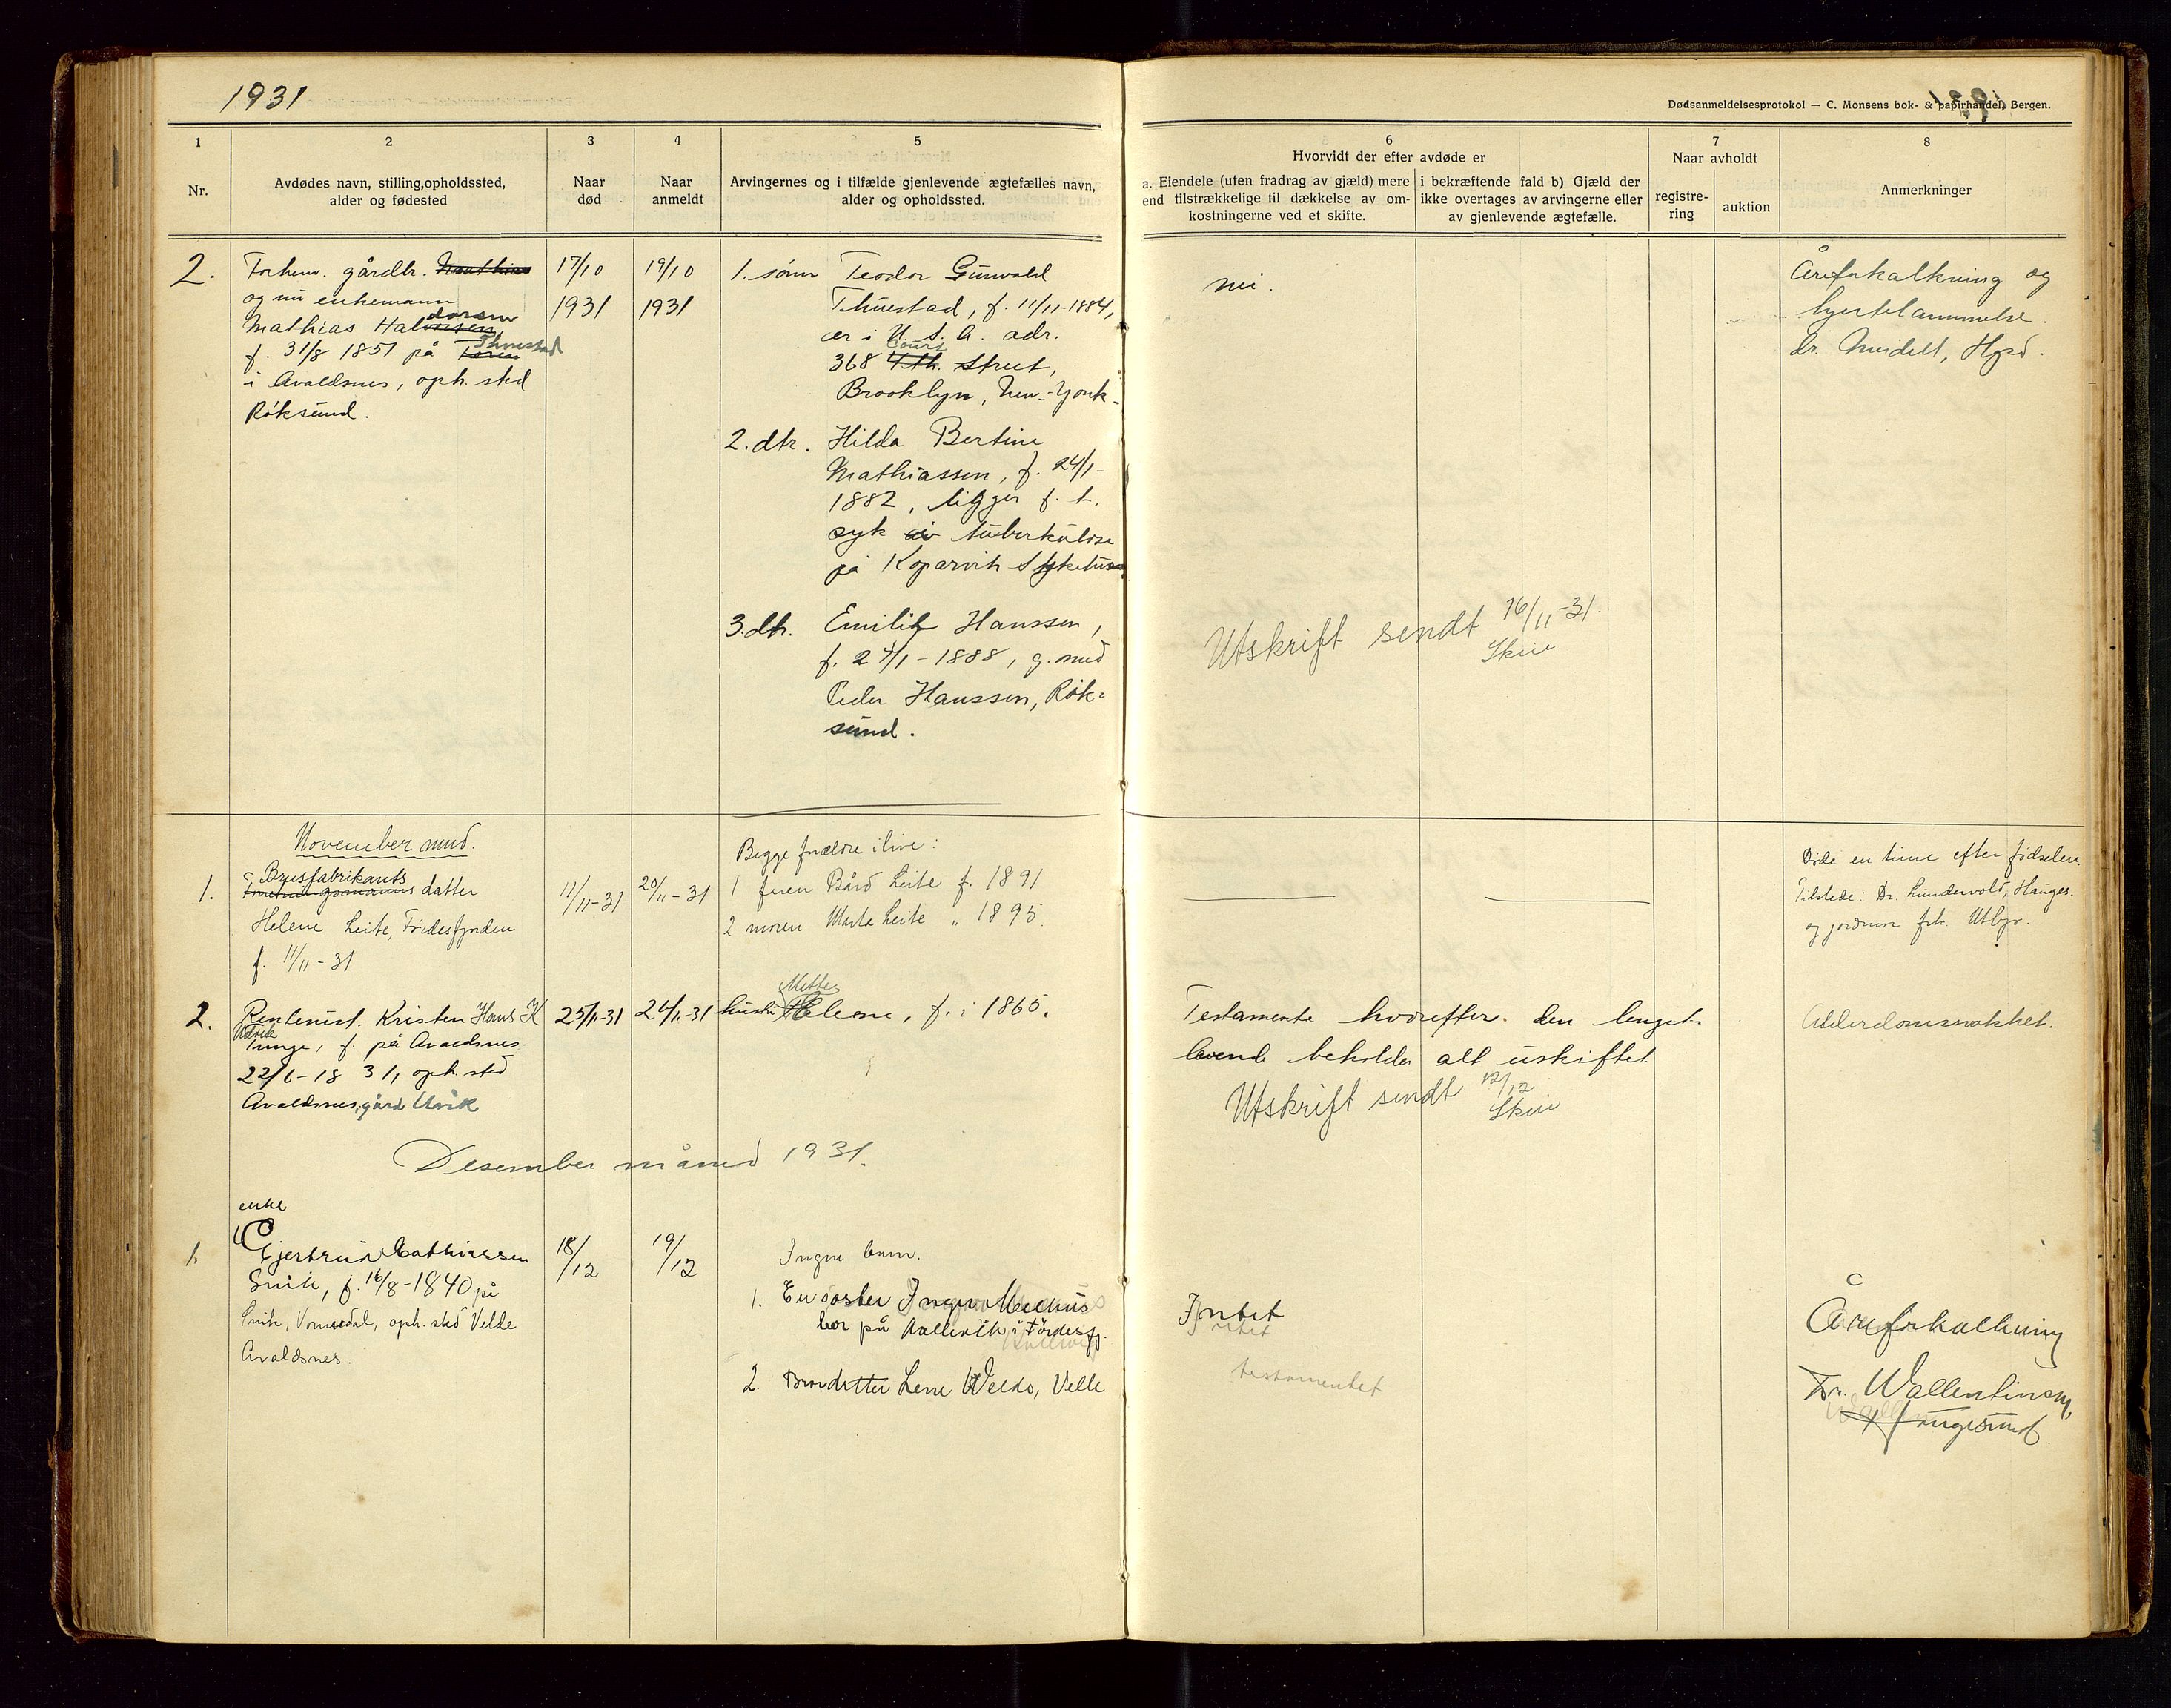 1931
Dødsanmeldelsesprotokol — C. Monsens bok- & papirhandel, Bergen.
1
2
3
4
5
6
7
8
Nr.
Avdødes navn, stilling, opholdssted,
alder og fødested
Naar
død
Naar
anmeldt
Arvingernes og i tilfælde gjenlevende ægtefælles navn,
alder og opholdssted.
Hvorvidt der efter avdøde er
a. Eiendele (uten fradrag av gjæld) mere
end tilstrækkelige til dækkelse av om-
kostningerne ved et skifte.
i bekræftende fald b) Gjæld der
ikke overtages av arvingerne eller
av gjenlevende ægtefælle.
Naar avholdt
registre-
ring
auktion
Anmerkninger
2.
Forhenv. gårdbr. Mathias
og nu enkemann
Mathias Halvorsen
f. 31/8 1851 på Thuestad
i Avaldsnes, oph. sted
Röksund.
17/10
1931
19/10
1931
1. sönn Teodor Gunvald
Thuestad, f. 11/11-1884,
er i U.S.A. adr.
Court
368 4th. Street,
Brooklyn, New-York.
2. dtr. Hilda Bertine
Mathiassen, f. 24/1-
1882, ligger f. t.
syk av tuberkulose
på Kopervik Sykehus
3. dtr. Emilie Hanssen,
f. 27/1-1888, g. med
Peder Hanssen, Rök-
sund.
nei.
Utskrift sendt 16/11-31.
Skui
Åreforkalkning og
hjertelammelse.
dr. Meidell, Hgsd.
November mnd.
1.
Brusfabrikants
datter
Helene Leite, Frödesfjorden
f. 11/11-31
11/11-31
20/11-31
Begge foreldre i live:
1 faren Bård Leite f. 1891
2 moren Marta Leite " 1895.
Døde en time efter fødselen
Tilstede: Dr. Lundervold, Hauges.
og jordmor frk. Utbjo.
2.
Rentenist. Kristen Hans H
Utvik
Tunge, f. på Avaldsnes
22/6-1831, oph. sted
Avaldsnes, gård Utvik
23/11-31
24/11-31
Mette
hustru Helene, f. i 1865.
Testamente hvorefter den lengst-
levende beholder alt uskiftet.
Utskrift sendt 12/12
Skui
Alderdomssvakhet.
Desember måned 1931.
1.
enke
Gjertrud Mathiassen
Snik, f. 16/8-1840 på
Snik, Vormedal, oph. sted Velde
Avaldsnes.
18/12
19/12
Ingen barn.
1. En søster Inger
bor på Kallevik i Førdesfj.
2. Brordatter Lene Velde, Velle
Intet
testamentet
Åreforkalkning
Dr. Wallentinsen,
Haugesund.